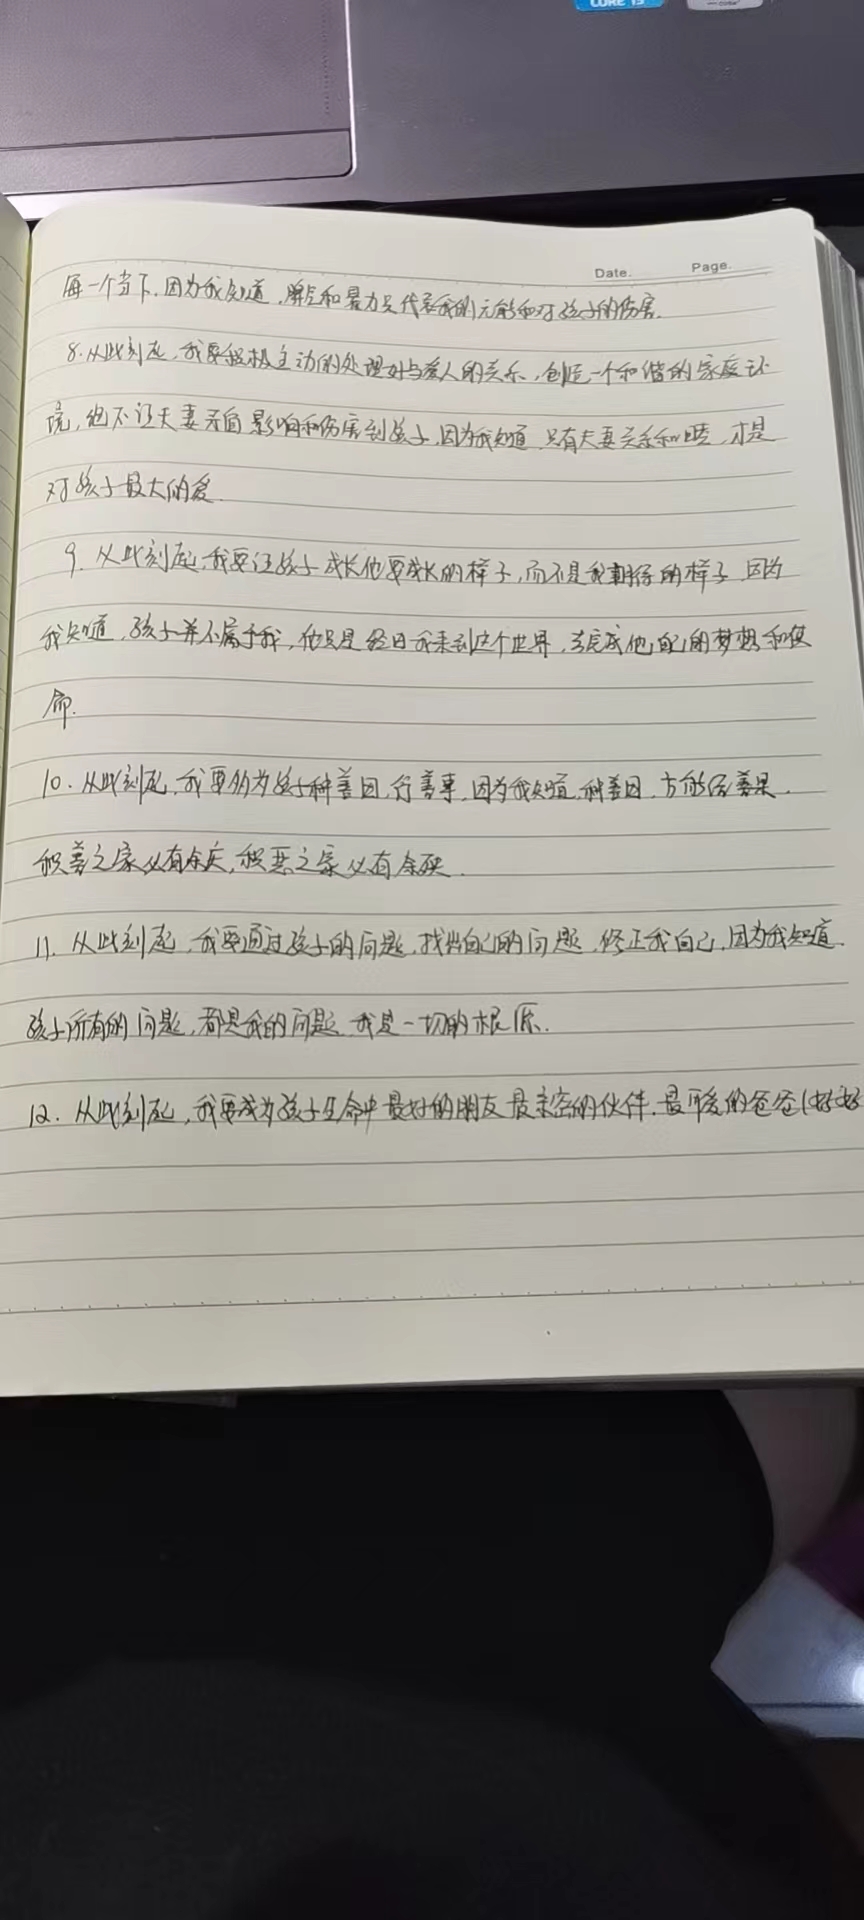 CORE i5
Date.
Page.
每一个当下,因为我知道,脾气和暴力只代表我的无能和对孩子的伤害.
8.从此刻起,我要积极主动的处理好与爱人的关系,创造一个和谐的家庭环
境,绝不让夫妻矛盾影响和伤害到孩子,因为我知道,只有夫妻关系和睦,才是
对孩子最大的爱.
9.从此刻起,我要让孩子成长他要成长的样子,而不是我期待的样子,因为
我知道,孩子并不属于我,他只是经由我来到这个世界,去完成他自己的梦想和使
命.
10.从此刻起,我要多为孩子种善因,行善事,因为我知道,种善因,方能结善果.
积善之家必有余庆,积恶之家必有余殃.
11.从此刻起,我要通过孩子的问题,找出自己的问题,修正我自己,因为我知道.
孩子所有的问题,都是我的问题,我是一切的根源.
12.从此刻起,我要成为孩子生命中最好的朋友,最亲密的伙伴,最可爱的爸爸(妈妈